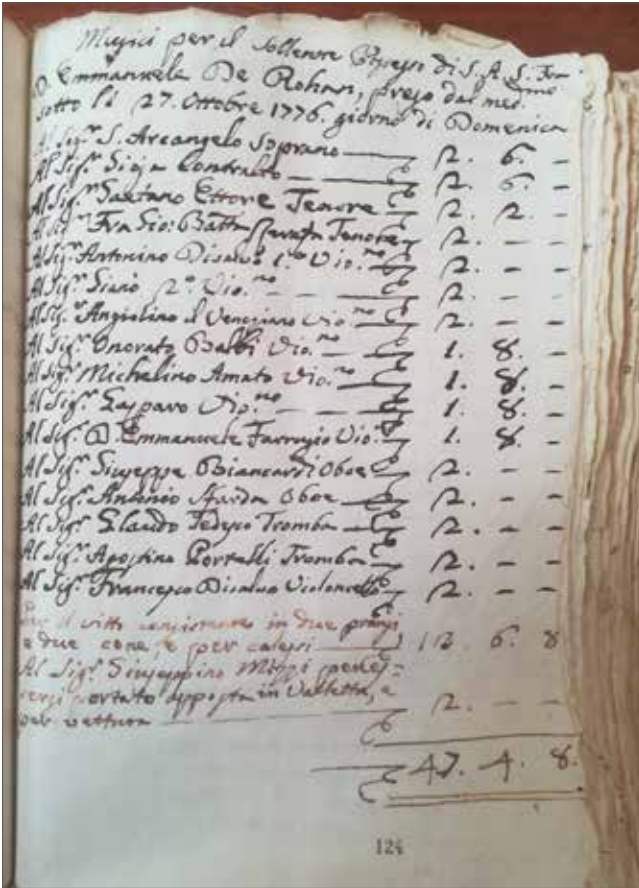 Musici per il Sollenne Possesso di S. A. S. Fra
D. Emmanuele De Rohan, preso dal med.mo
sotto li 27. Ottobre 1776. giorno di Domenica
Al Sig.r S. Arcangelo Soprano — 2. 6. –
Al Sig.r Contralto — 2. 6. –
Al Sig.r Gaetano Ettore Tenore 2. 2. –
Al Sig.r Fra Gio: Batta Tenore 2. – –
Al Sig.r Antonino Disalvo 1.o Vio.no 2. – –
Al Sig.r 2.o Vio.no – – 2. – –
Al Sig.r Angiolino il Veneziano Vio.no 2. – –
Al Sig.r Onorato Balbi Vio.no — 1. 8. –
Al Sig.r Michelino Amato Vio.no – 1. 8. –
Al Sig.r Gasparo Vio.no – – – 1. 8. –
Al Sig.r D. Emmanuele Farrugio Vio. 1. 8. –
Al Sig.r Giuseppe Biancardi Oboe 2. – –
Al Sig.r Antonio Oboe — 2. – –
Al Sig.r Claudo Tedesco Tromba — 2. – –
Al Sig.r Agostino Portelli Tromba — 2. – –
Al Sig.r Francesco Disalvo Violoncello 2. – –
Per il vitto consistente in due pranzi
e due cene, e per calessi — 12. 6. 8
Al Sig.r Giuseppino
portato apposta in Valletta, e
per vettura — 2. – –
47. 4. 8.
124